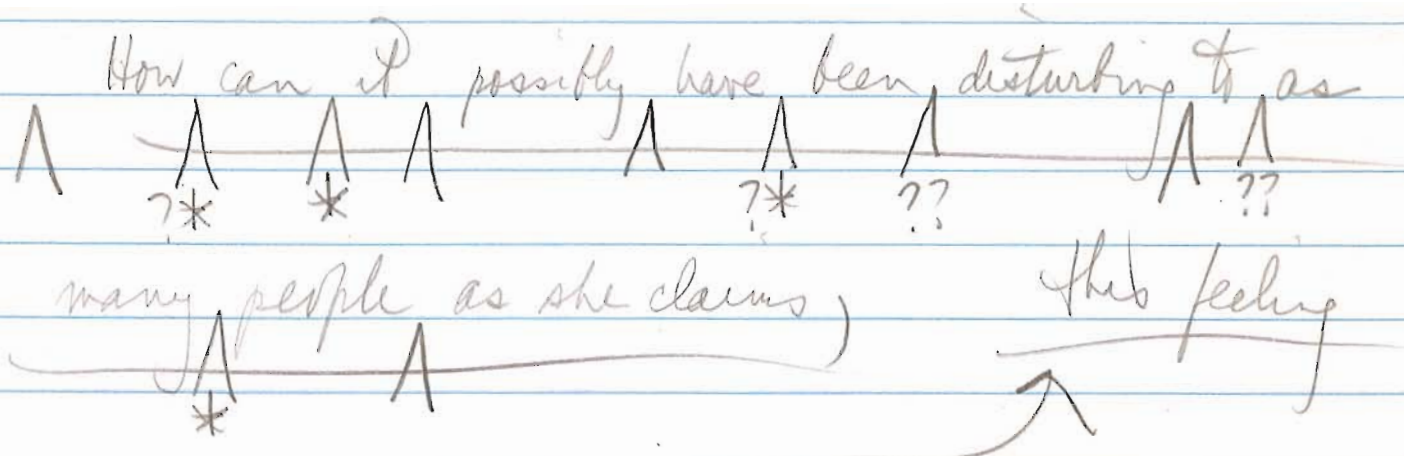 How can it possibly have been disturbing to as
?* * ?* ?? ??
many people as she claims, this feeling
*